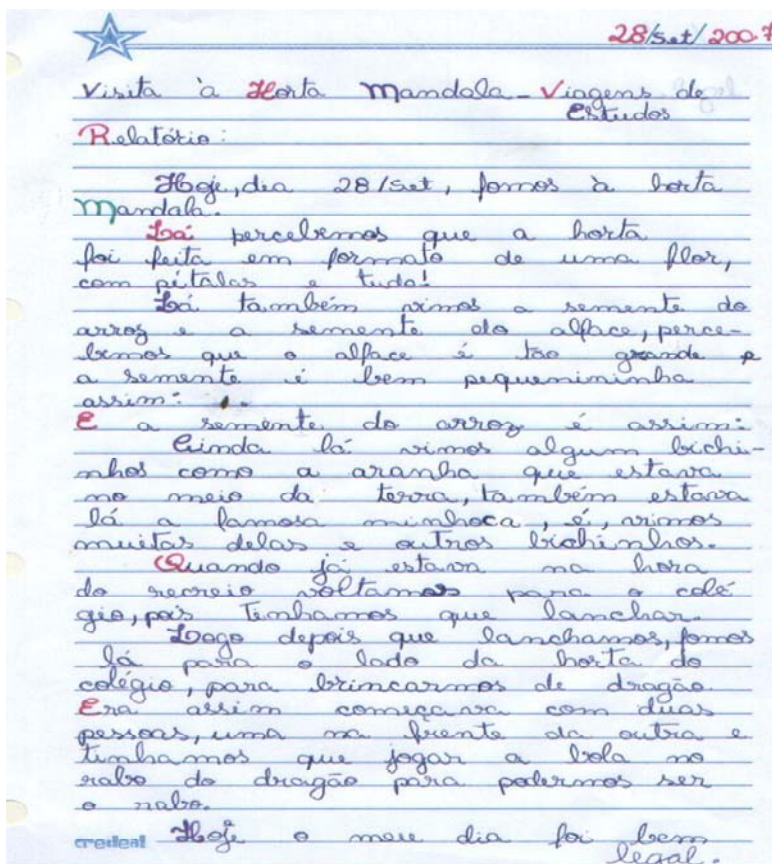 28/set/2007
Visita à Horta Mandala - Viagens de
Estudos
Relatório:
Hoje, dia 28/set, fomos à horta
Mandala.
Lá percebemos que a horta
foi feita em formato de uma flor,
com pétalas e tudo!
Lá também vimos a semente do
arroz e a semente do alface, perce-
bemos que o alface é tão grande e
a semente é bem pequenininha
assim:
E a semente do arroz é assim:
Ainda lá vimos algum bichi-
nhos como a aranha que estava
no meio da terra, também estava
lá a famosa minhoca, é, vimos
muitas delas e outros bichinhos.
Quando já estava na hora
do recreio voltamos para o colé
gio, pois tinhamos que lanchar.
Logo depois que lanchamos, fomos
lá para o lado da horta do
colégio, para brincarmos de dragão.
Era assim começava com duas
pessoas, uma na frente da outra e
tinhamos que jogar a bola no
rabo do dragão para podermos ser
o rabo.
credeal Hoje o meu dia foi bem
legal.